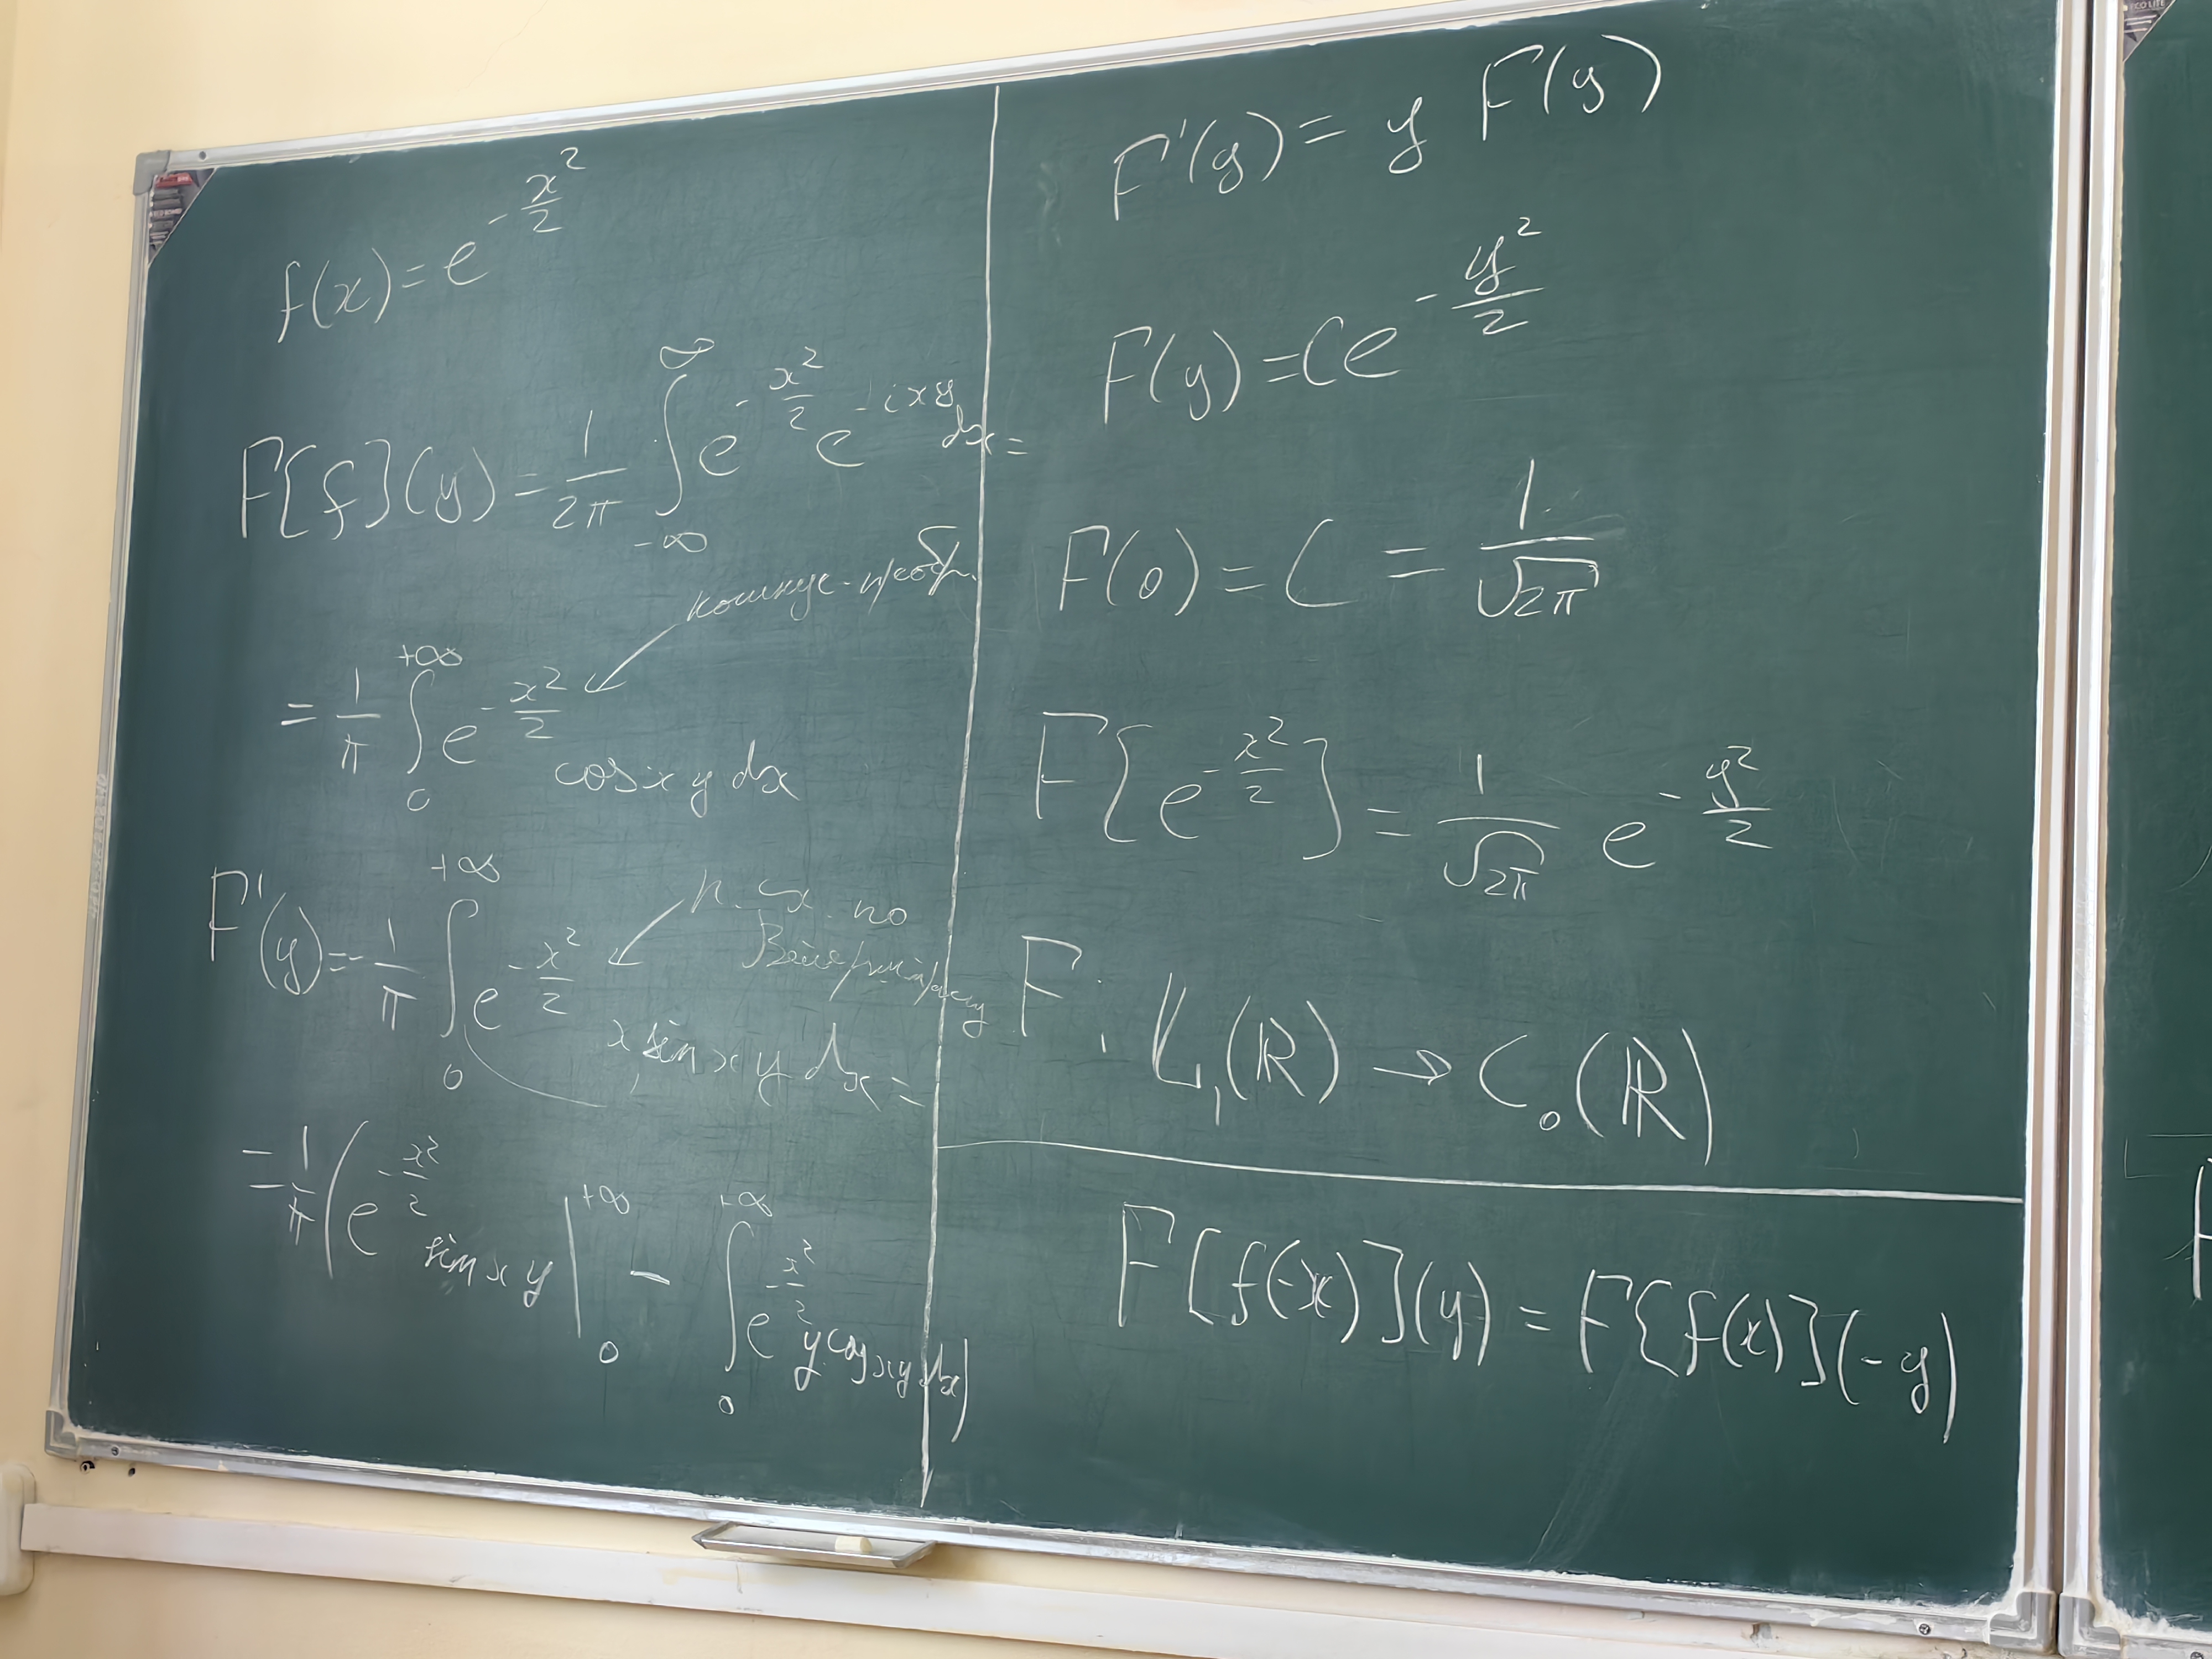 f(x) = e^{-x²/2}
F[f](y) = 1/2π ∫_{-∞}^{∞} e^{-x²/2} e^{-ixy} dx =
косинус-преобр.
= 1/π ∫_0^{+∞} e^{-x²/2} cos xy dx
р. сх. по
Вейерштрассу
F'(y) = -1/π ∫_0^{+∞} e^{-x²/2} x sin xy dx =
= 1/π (e^{-x²/2} sin xy |_0^{+∞} - ∫_0^{+∞} e^{-x²/2} y cos xy dx)
F'(y) = y F(y)
F(y) = C e^{-y²/2}
F(0) = C = 1/√2π
F[e^{-x²/2}] = 1/√2π e^{-y²/2}
F: L₁(ℝ) → C₀(ℝ)
F[f(-x)](y) = F[f(x)](-y)